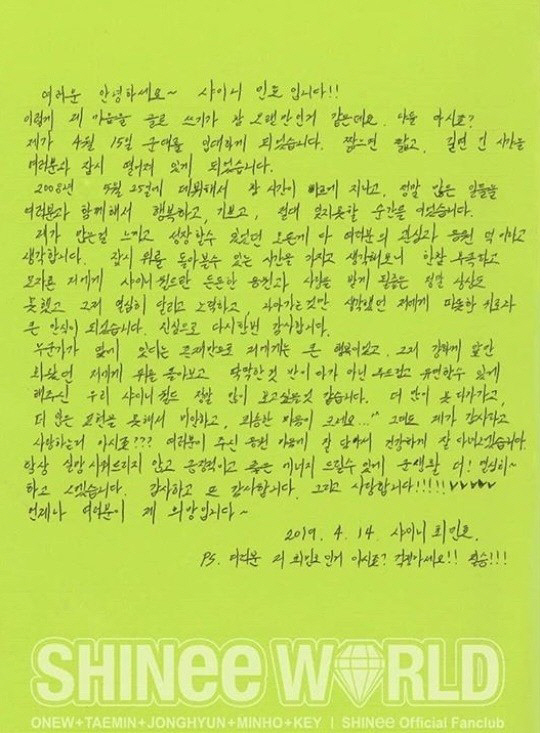 여러분 안녕하세요~ 샤이니 민호입니다!!
이렇게 제 마음을 글로 쓰기가 참 오랜만인거 같은데요. 다들 아시죠?
제가 4월 15일 군대를 입대하게 되었습니다. 짧으면 짧고, 길면 긴 시간을
여러분과 잠시 떨어져 있게 되었습니다.
2008년 5월 25일에 데뷔해서 참 시간이 빠르게 지나고, 정말 많은 일들을
여러분과 함께해서 행복하고, 기쁘고, 절대 잊지못할 순간을 얻었습니다.
제가 많은걸 느끼고 성장할수 있었던 모든게 다 여러분의 관심과 응원 덕이라고
생각합니다. 잠시 뒤를 돌아볼수 있는 시간을 가지고 생각해보니 한참 부족하고
모자른 저에게 샤이니월드란 든든한 응원과 사랑을 받게 될줄은 정말 상상도
못했고 그저 열심히 달리고 노력하고, 나아가는것만 생각했던 저에게 따뜻한 위로와
큰 안식이 되었습니다. 진심으로 다시한번 감사합니다.
누군가가 옆에 있다는 존재만으로 저에게는 큰 행복이었고, 그저 강하게 앞만
봐왔던 저에게 뒤를 돌아보고 딱딱한것 만이 아닌 부드럽고 유연할수 있게
해주신 우리 샤이니월드 정말 많이 보고싶을것 같습니다. 더 많이 못 다가가고,
더 많은 표현을 못해서 미안하고, 죄송한 마음이 크네요...^^ 그래도 제가 감사하고
사랑하는거 아시죠??? 여러분이 주신 응원 마음에 잘 담아서 건강하게 잘 다녀오겠습니다.
항상 실망 시켜드리지 않고 긍정적이고 좋은 에너지 드릴수 있게 군생활 더! 열심히~
하고 오겠습니다. 감사하고 또 감사합니다. 그리고 사랑합니다!!!!!!
언제나 여러분이 제 희망입니다~
2019. 4. 14. 샤이니 최민호.
PS. 여러분 저 최민호인거 아시죠? 걱정마세요!! 필승!!!
SHINee WORLD
ONEW+TAEMIN+JONGHYUN+MINHO+KEY | SHINee Official Fanclub